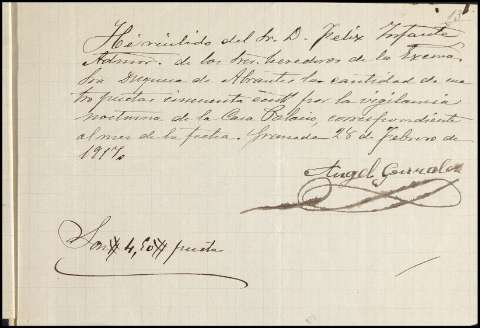 He recibido del Sr. D. Félix Infante
Admor. de los Sres. herederos de la Excma.
Sra Duquesa de Abrantes la cantidad de cua
tro pesetas cincuenta cents por la vigilancia
nocturna de la Casa Palacio, correspondiente
al mes de la fecha. Granada 28 de Febrero de
1917.
Angel
Son # 4,50 # pesetas